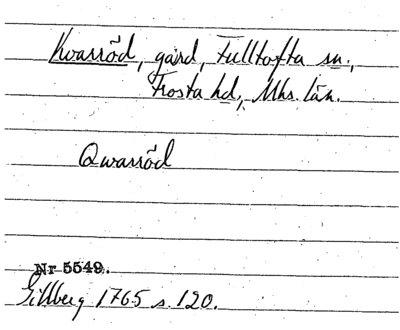 Kvarröd, gård, Fulltofta sn.,
Frosta hd, Mhs. län.
Qwarröd
Nr 5549.
Gillberg 1765 s. 120.